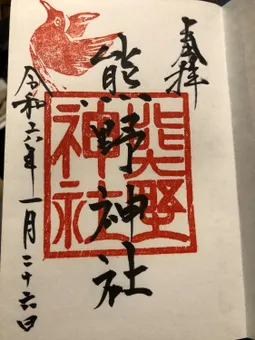 奉拝
熊野神社
熊野
神社
令和六年一月二十六日